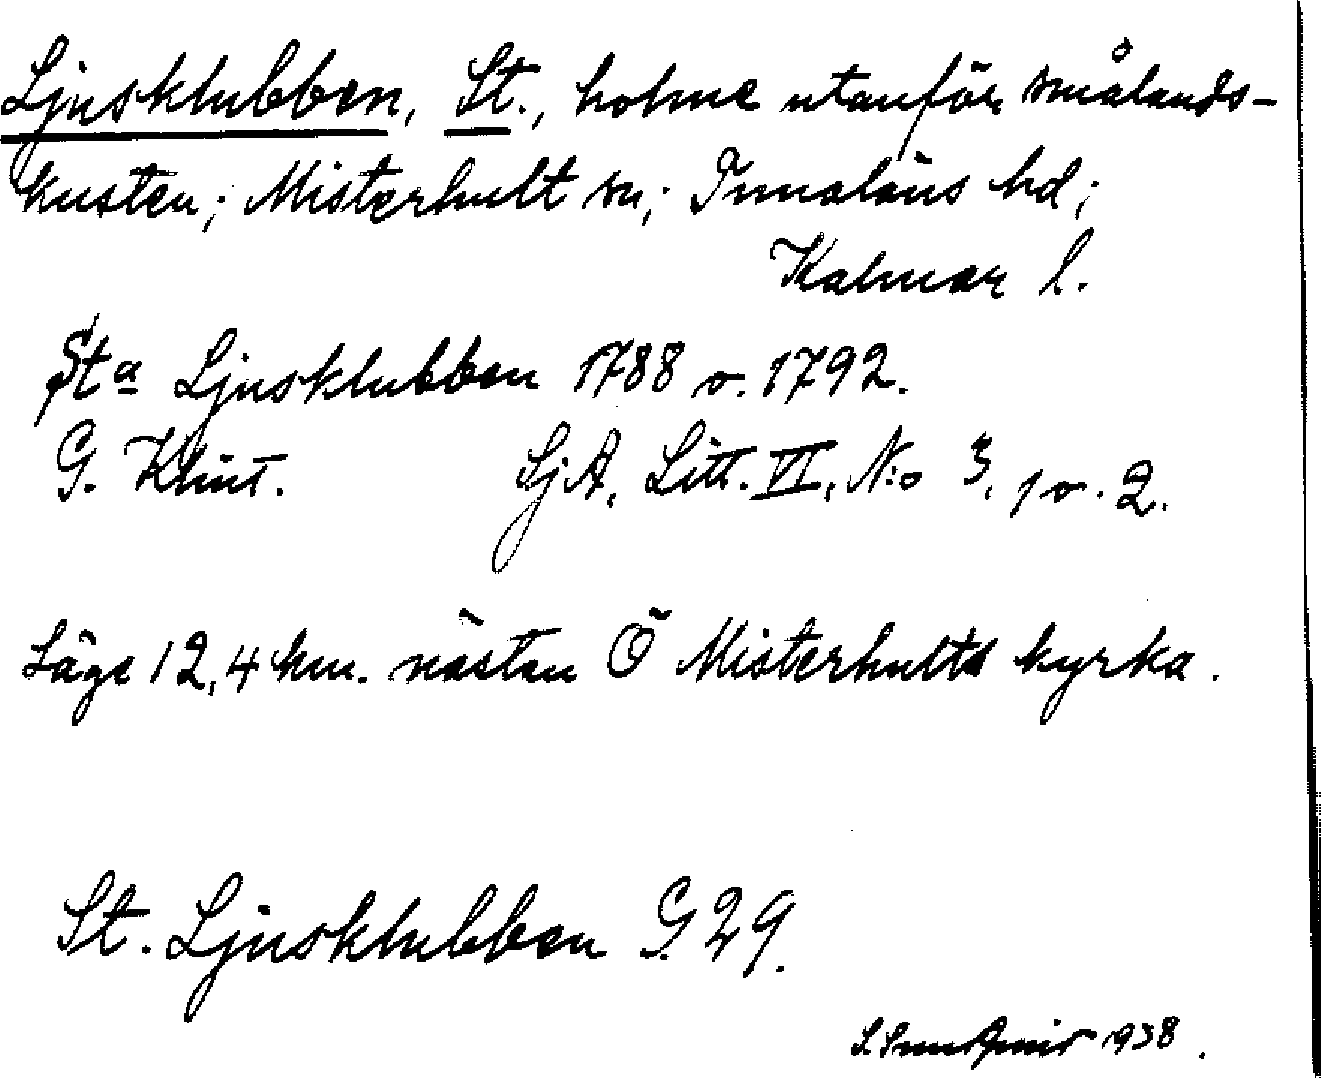 Ljusklubben, St., holme utanför smålands-
kusten; Misterhult sn; Tunaläns hd;
Kalmar l.
Sta Ljusklubben 1788 o. 1792.
G. Klint. SjA, Litt. VI, N:o 3, 1 o. 2.
Läge 12,4 km. nästan Ö Misterhults kyrka.
St. Ljusklubben G. 29.
1938.